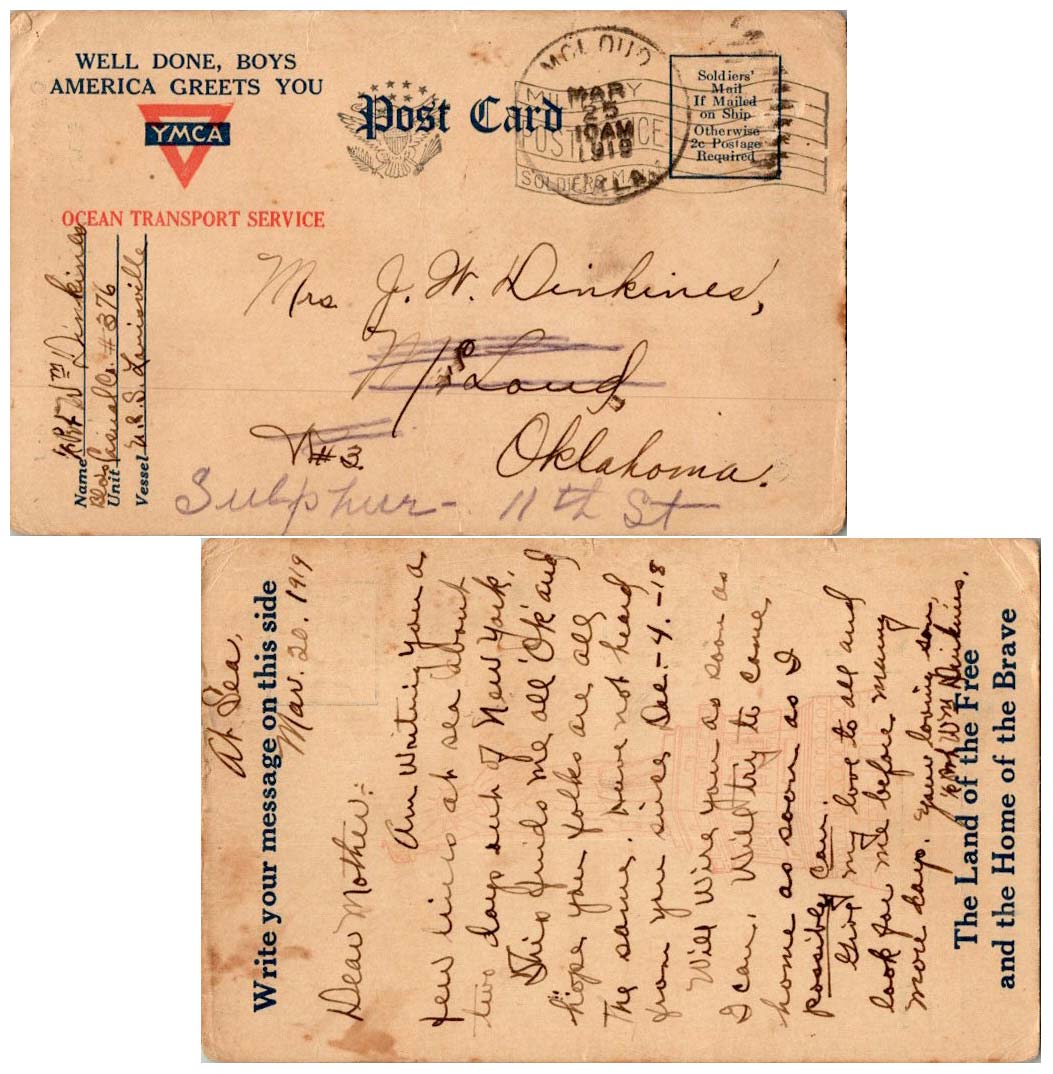 WELL DONE, BOYS
AMERICA GREETS YOU
YMCA
OCEAN TRANSPORT SERVICE
Post Card
MCLOUD
MAR
25
10AM
1919
OKLA.
MILITARY
POST OFFICE
SOLDIERS MAIL
Soldiers'
Mail
If Mailed
on Ship
Otherwise
2c Postage
Required
Name Wm Dinkines
Unit Casual Co. #376
Vessel U.S.S. Louisville
Mrs. J. W. Dinkines,
McLoud,
#3.
Oklahoma.
Sulphur - 11th St
Write your message on this side
At Sea,
Mar. 20. 1919
Dear Mother:
Am writing you a
few lines at sea about
two days out of New York.
This finds me all "Ok" and
hope you folks are all
the same. Have not heard
from you since Dec. - 4. - 18
Will Wire you as soon as
I can. Will try to come
home as soon as I
possibly can.
Give my love to all and
look for me before many
more days. Your loving son,
Wm Dinkines.
The Land of the Free
and the Home of the Brave